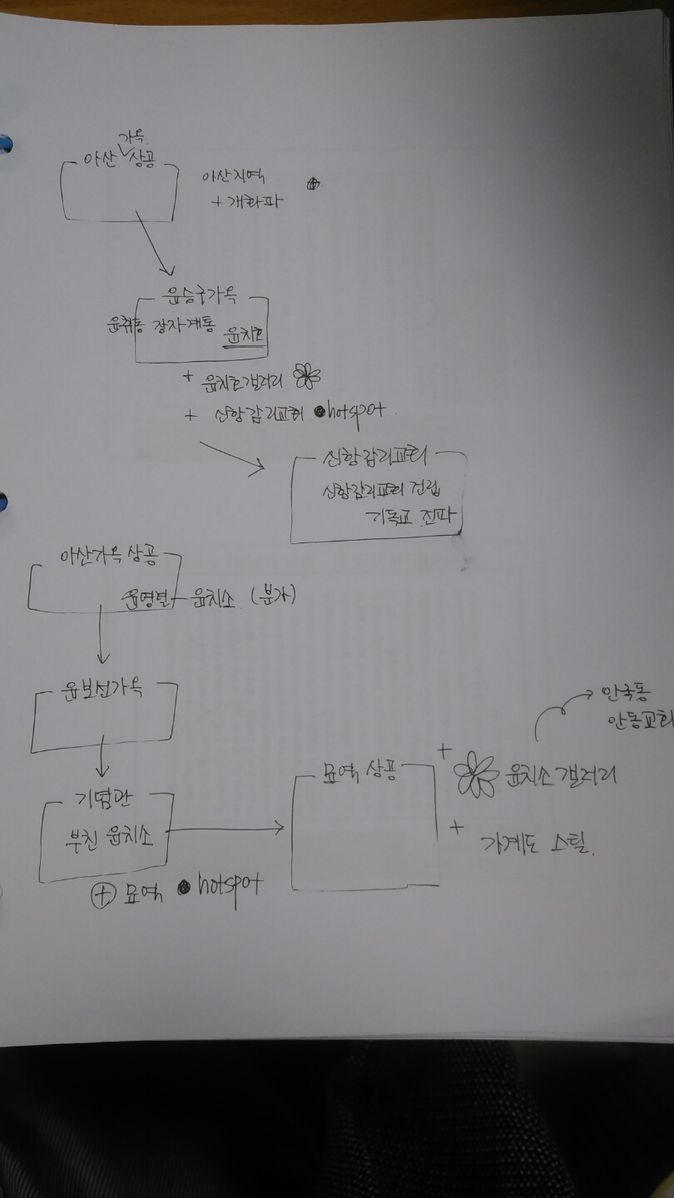 가옥
아산 상공
아산지역
+ 개화파
윤승구가옥
윤취동 장자계통 윤치호
+ 윤치호갤러리
+ 신항감리교회 hotspot
신항감리교회
신항감리교회 건립
기독교 전파
아산가옥 상공
윤영렬 - 윤치소 (분가)
윤보선가옥
안국동
안동교회
기념관
부친 윤치소
묘역 상공
+ 윤치소갤러리
+ 가계도 스틸
+ 묘역 hotspot